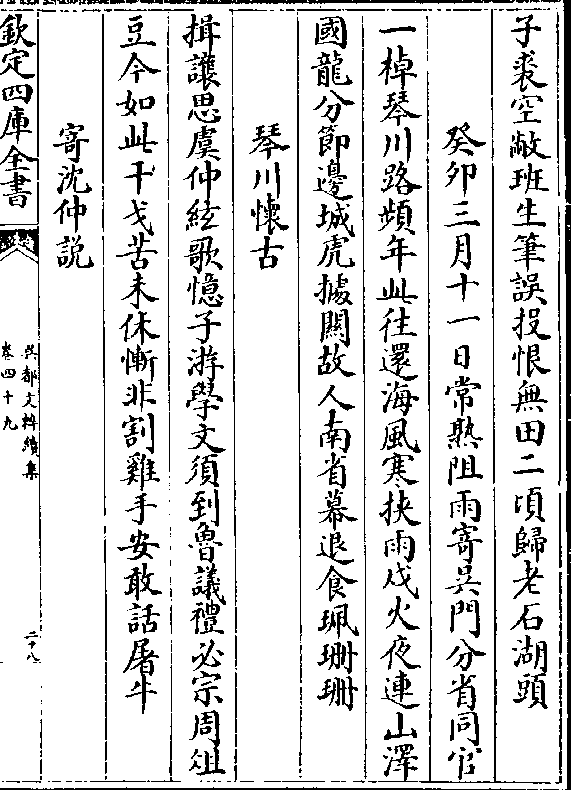 子裘空敝班生筆誤投恨無田二頃歸老石湖頭
癸卯三月十一日常熟阻雨寄吳門分省同官
一棹琴川路頻年此往還海風寒挾雨戍火夜連山澤
國龍分節邊城虎據關故人南省幕退食珮珊珊
琴川懷古
揖讓思虞仲絃歌憶子游學文須到魯議禮必宗周俎
豆今如此干戈苦未休慚非割雞手安敢話屠牛
寄沈仲説
欽定四庫全書
吳都文粹續集
卷四十九
二十八